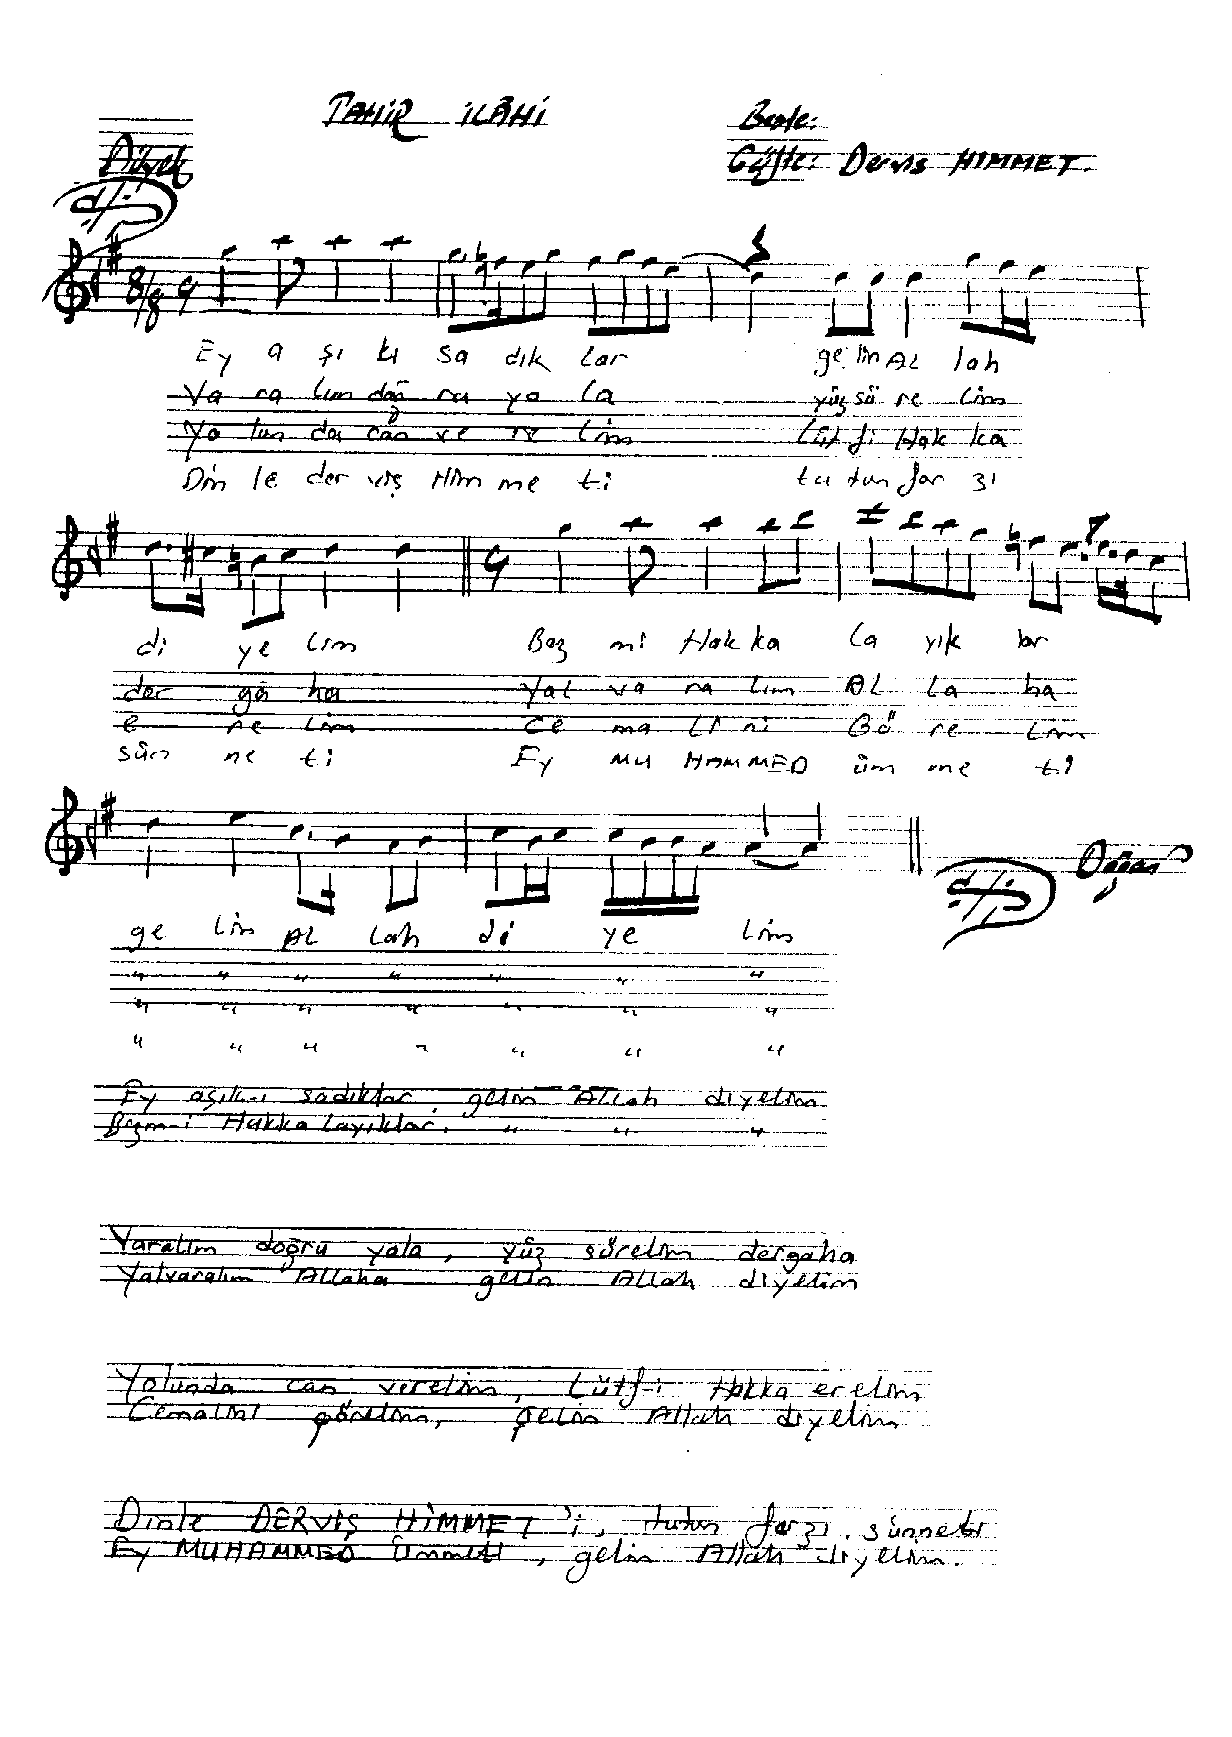 TAHiR iLÂHi
Beste:
Düyek
Güfte: Derviş HIMMET.
8/8
Ey a şı kı sa dık lar ge lin AL lah
Va ra lım doğ ru yo la yüz sü re lim
Yo lun da can ve re lim Lüt fi Hak ka
Din le der viş Him me ti tu tun far zı
di ye lim Bez mi Hak ka la yık lar
der gâ ha Yal va ra lım AL La ha
e re lim Ce ma li ni Gö re lim
sün ne ti Ey MU HAMMED üm me ti
ge lin AL Lah di ye lim
" " " " " " "
" " " " " " "
" " " " " " "
Doğan
Ey aşık-ı sadıklar, gelin Allah diyelim
Bezm-i Hakka Layıklar. " " "
Varalım doğru yola, yüz sürelim dergaha
Yalvaralım Allaha gelin Allah diyelim
Yolunda can verelim, Lütf-i Hakka erelim
Cemalini görelim, gelin Allah diyelim
Dinle DERViŞ HiMMET'i, tutun farzı. sünneti
Ey MUHAMMED Ümmeti, gelin Allah diyelim.